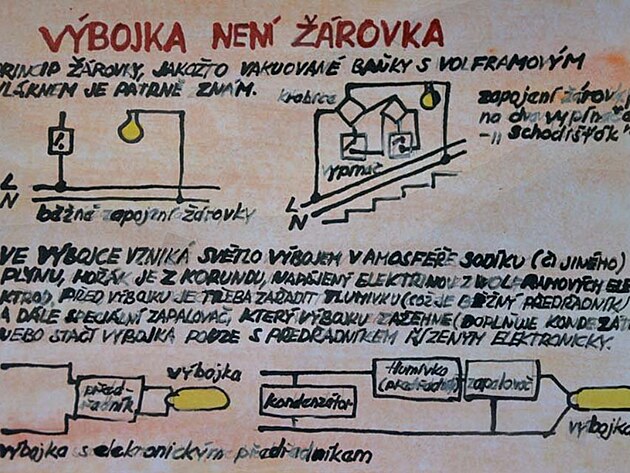 VÝBOJKA NENÍ ŽÁROVKA
PRINCIP ŽÁROVKY, JAKOŽTO VAKUOVANÉ BAŇKY S VOLFRAMOVÝM
VLÁKNEM JE PATRNĚ ZNÁM.
krabice
zapojení žárovky
na dva vypínače
-„schodišťák"
vypínač
L
N
běžné zapojení žárovky
L
N
VE VÝBOJCE VZNIKÁ SVĚTLO VÝBOJEM V AMOSFÉŘE SODÍKU (ČI JINÉHO)
PLYNU, HOŘÁK JE Z KORUNDU, NAPÁJENÝ ELEKTRINOU Z WOLFRAMOVÝCH ELE
KTROD, PŘED VÝBOJKU JE TŘEBA ZAŘADIT TLUMIVKU (COŽ JE BĚŽNÝ PŘEDŘADNÍK)
A DÁLE SPECIÁLNÍ ZAPALOVAČ, KTERÝ VÝBOJKU ZAŽEHNE (DOPLŇUJE KONDEZÁT
NEBO STAČÍ VÝBOJKA POUZE S PŘEDŘADNÍKEM ŘÍZENÝM ELEKTRONICKY.
výbojka
před-
řadník
kondenzátor
tlumivka
(předřadník)
zapalovač
výbojka
výbojka s elekronickým předřadníkem